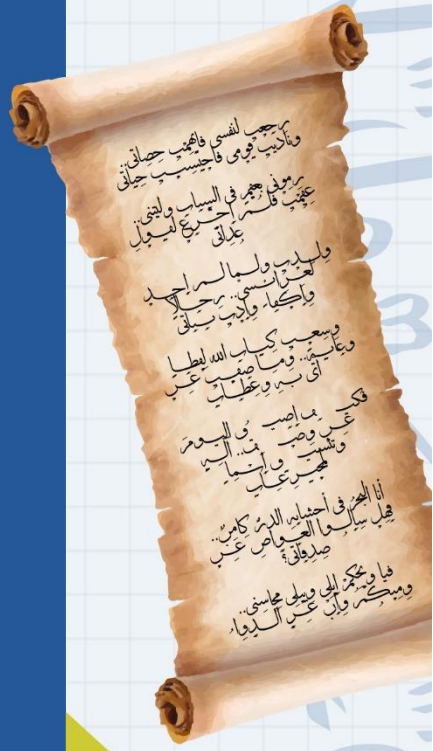 رجعت لنفسي فاتهمت حصاتي..
وناديت قومي فاحتسبت حياتي
رموني بعقم في الشباب وليتني..
عقمت فلم أجزع لقول
عداتي
ولدت ولما لم اجد
لعرائسي.. رجالا
وأكفاء وأدت بناتي
وسعت كتاب الله لفظا
وغاية.. وما ضقت عن
آي به وعظات
اليوم
عن
أنا البحر في أحشائه الدر كامن..
فهل سألوا الغواص عن
صدفاتي؟
فيا ويحكم أبلى وتبلى محاسني..
ومنكم وإن عز الدواء